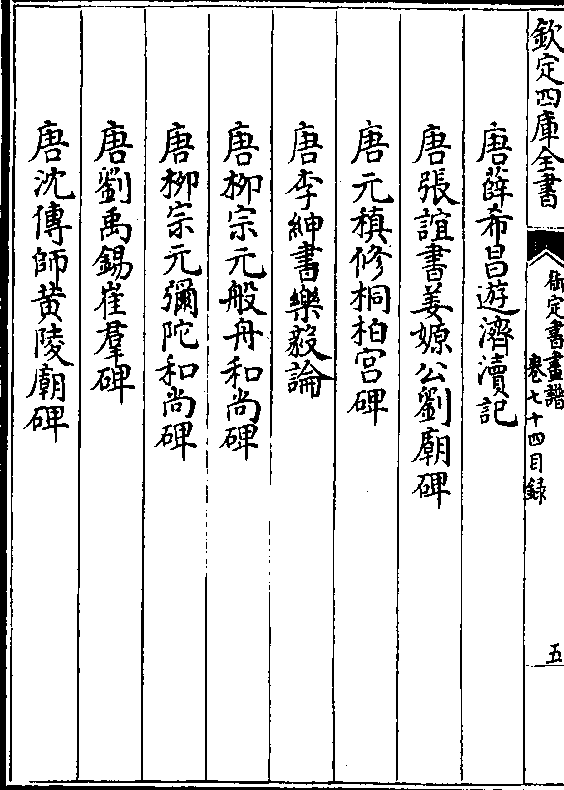 欽定四庫全書
御定書畫譜
卷七十四目録
五
唐薛希昌遊濟瀆記
唐張誼書姜嫄公劉廟碑
唐元稹修桐柏宫碑
唐李紳書樂毅論
唐柳宗元般舟和尚碑
唐柳宗元彌陀和尚碑
唐劉禹錫崔羣碑
唐沈傳師黄陵廟碑